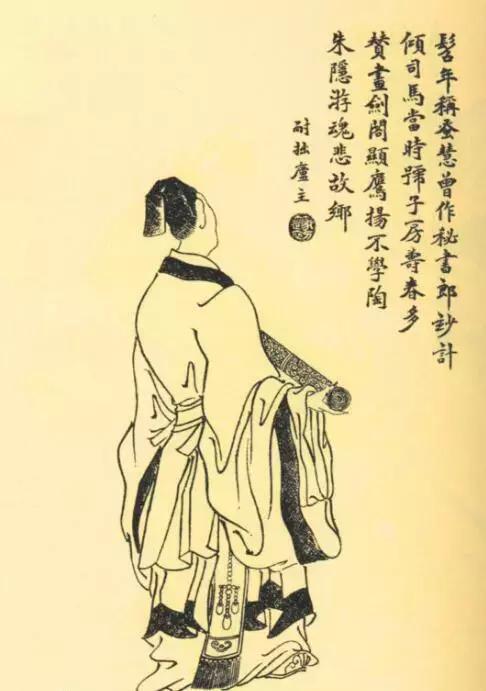 髫年稱蚤慧曾作秘書郎玅計
傾司馬當時號子房壽春多
贊畫劍閣顯鷹揚不學陶
朱隱游魂悲故鄉
耐拙廬主